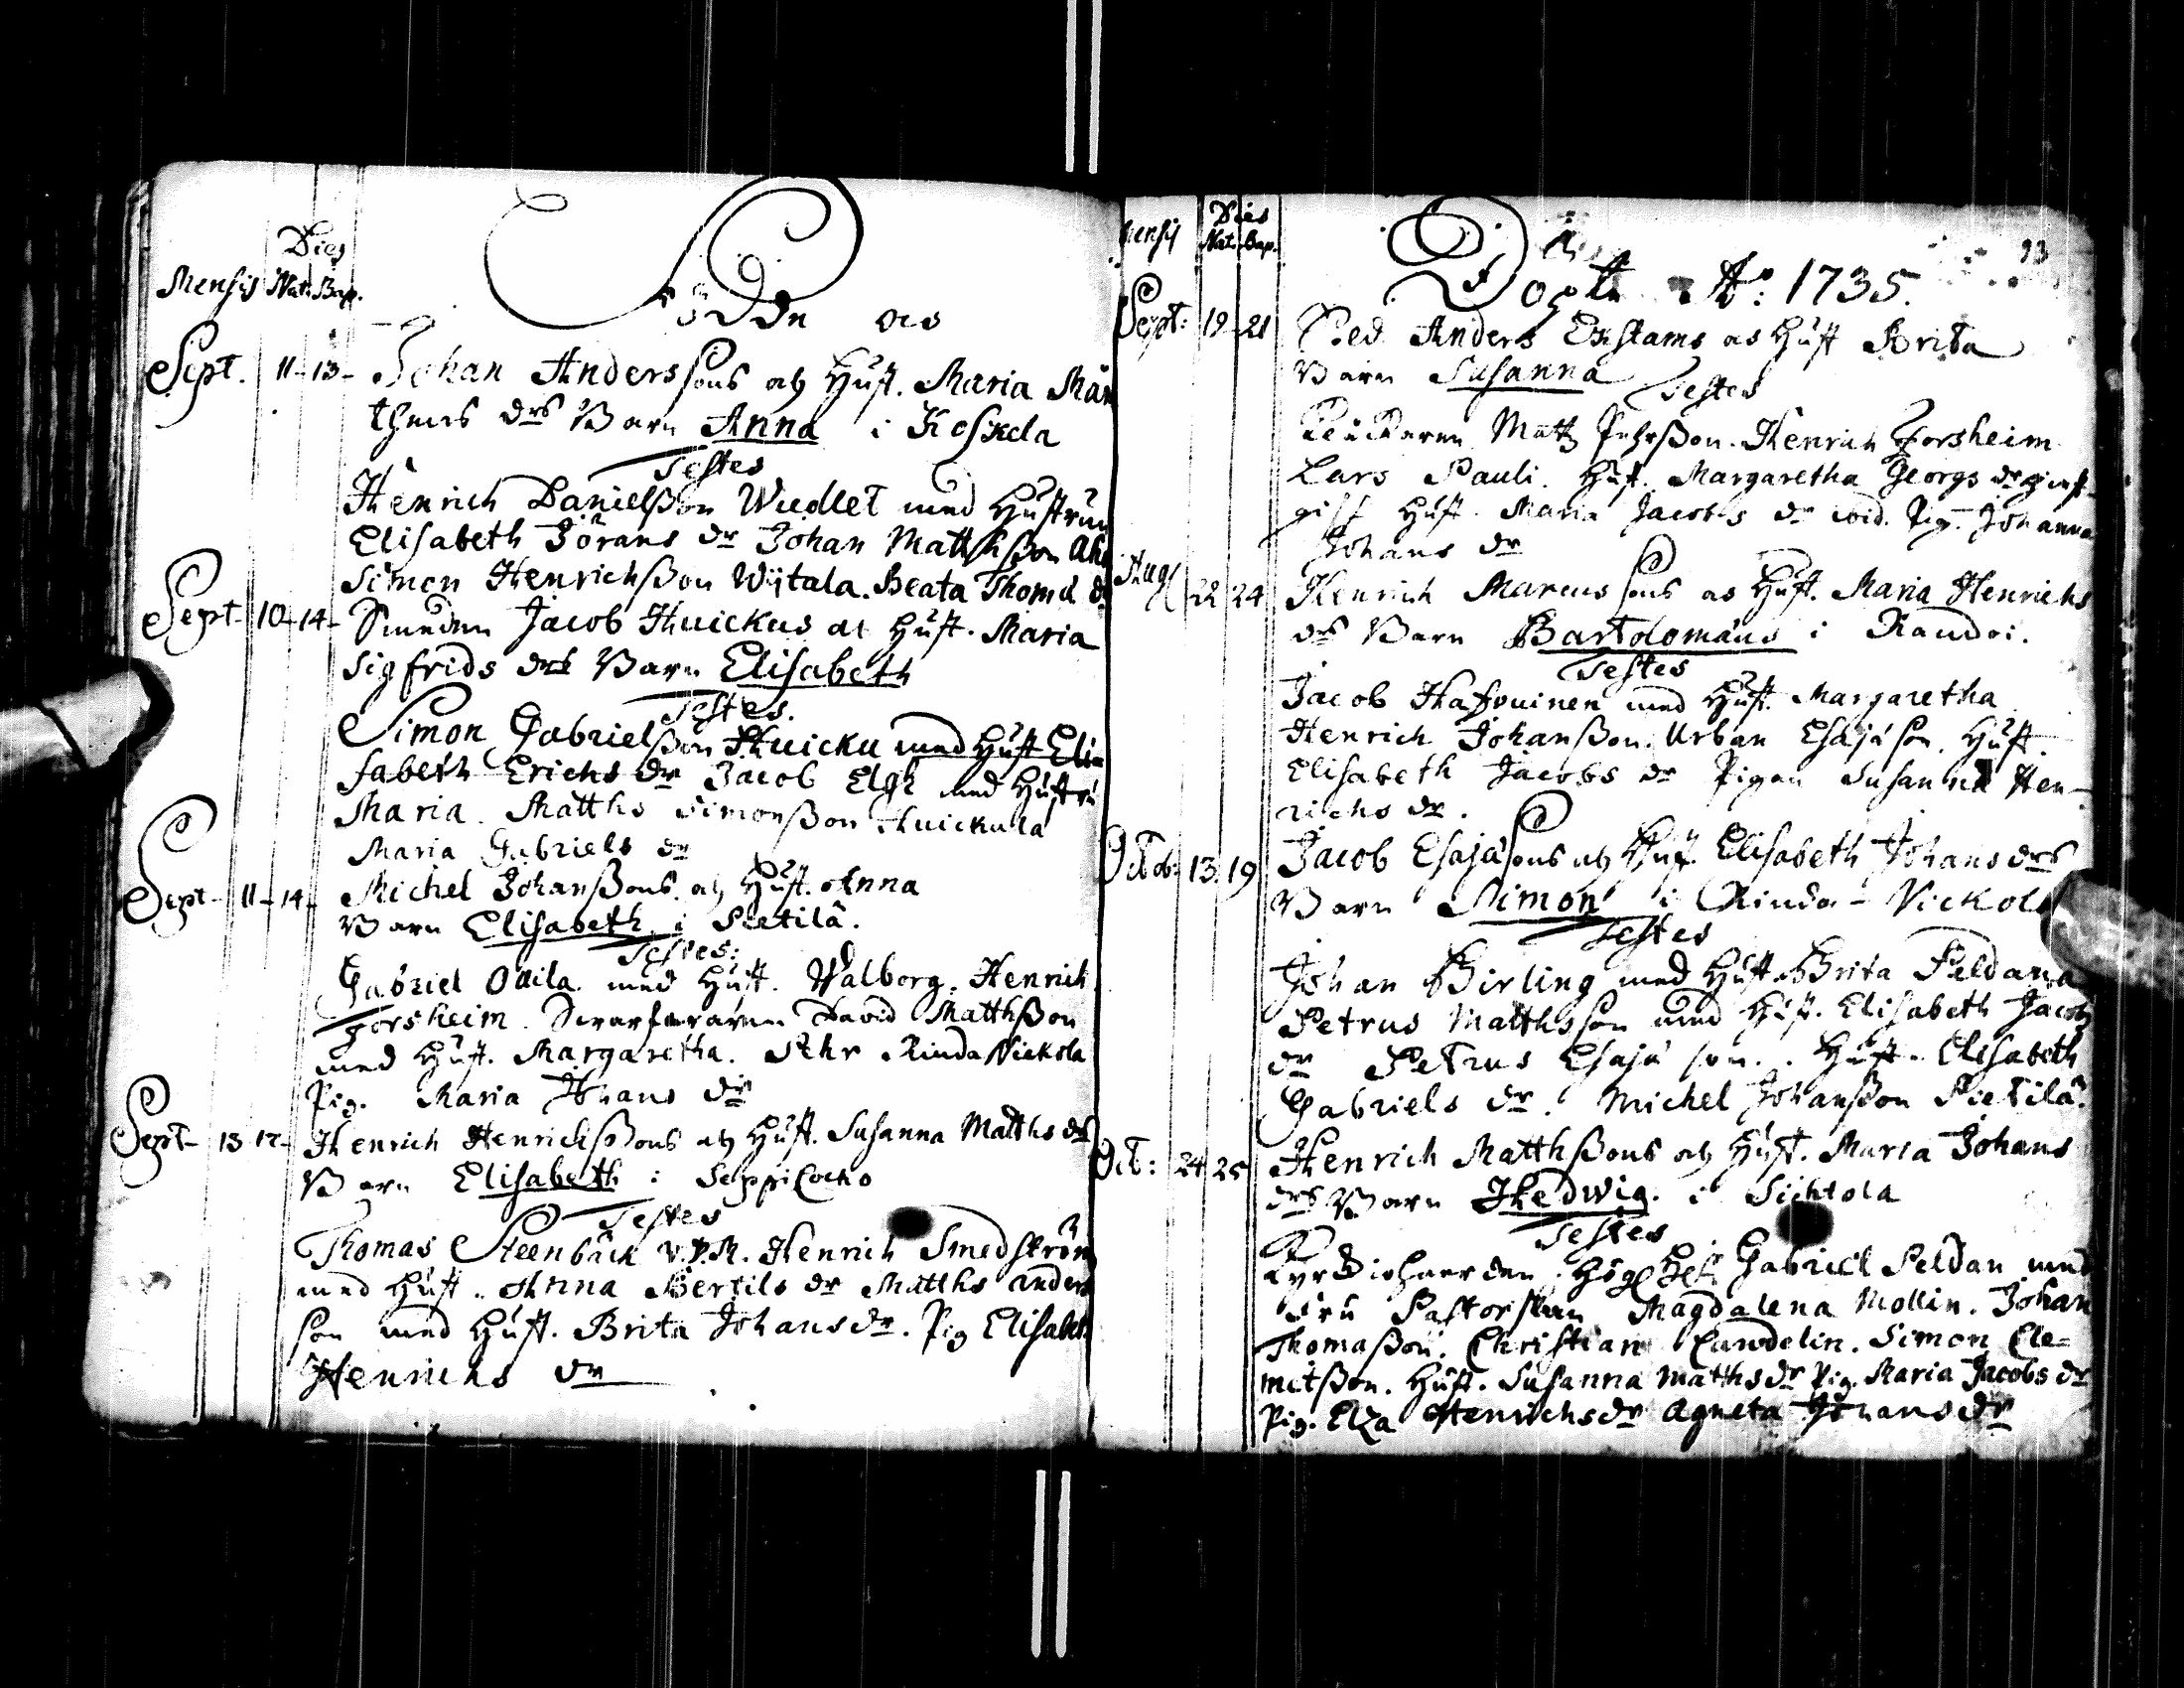 Dies
Mensis Nat. Bap.
Födde och
Sept. 11-13- Johan Anderssons och Hust. Maria Mår
thens drs Barn Anna i Koskela
Testes
Henrich Danielsson Wiedlet med Hustrun
Elisabeth Jörans dr Johan Matthsson Aho
Simon Henrichsson Wijtala. Beata Thomæ dr
Sept- 10-14- Smeden Jacob Huickus och Hust. Maria
Sigfrids drs Barn Elisabeth
Testes.
Simon Gabrielsson Huicku med Hust Eli
sabeth Erichs dr Jacob Elgh med Hustru
Maria. Matths Simonsson Huickula
Maria Gabriels dr
Sept- 11-14- Michel Johanssons och Hust. Anna
Barn Elisabeth i Pietilä.
Testes:
Gabriel Ollila med Hust. Walborg. Henrich
Forsheim. Swarfwaren David Matthsson
med Hust. Margaretha. Pehr Rinda Nickola
Pig. Maria Johans dr
Sept- 13 17- Henrich Henrichssons och Hust. Susanna Matths drs
Barn Elisabeth i Seppi
Testes
Thomas Steenbäck V.P.M. Henrich Smedström
med Hust. Anna Bertils dr Matths anders
son med Hust. Brita Johans dr. Pig Elisabeth
Henrichs dr
Dies
Mensis Nat. Bap.
93
Döpte Ao: 1735.
Sept: 19-21 Anders Ekstams och Hust Brita
Barn Susanna
Testes
Klåckaren Matts Pehrsson. Henrich Forsheim
Lars Pauli. Hust. Margaretha Georgs dr
Hust. Maria Jacobs dr ibid. Pig. Johanna
Johans dr
Aug 22 24 Henrich Marcussons och Hust. Maria Henrichs
drs Barn Bartolomæus i Raudoi.
Testes
Jacob med Hust. Margaretha
Henrich Johansson. Urban Esajæson. Hust.
Elisabeth Jacobs dr Pigan Susanna Hen-
richs dr.
Octob: 13. 19 Jacob Esajæsons och Hust. Elisabeth Johans drs
Barn Simon i Rinda-Nickola
Testes
Johan Birling med Hust. Brita Peldana
Petrus Matthsson med Hust. Elisabeth Jacobs
dr Petrus Esajæson. Hust. Elisabeth
Gabriels dr. Michel Johansson Pietilä.
Oct: 24 25 Henrich Matthssons och Hust. Maria Johans
drs Barn Hedwig. i Sichtola
Testes
Kyrckioherden Gabriel Peldan med
Fru Pastorskan Magdalena Mollin. Johan
Thomasson. Christian Simon Cle-
metsson. Hust. Susanna Matths dr Pig. Maria Jacobs dr
Pig. Elza Henrichs dr Agneta Johans dr